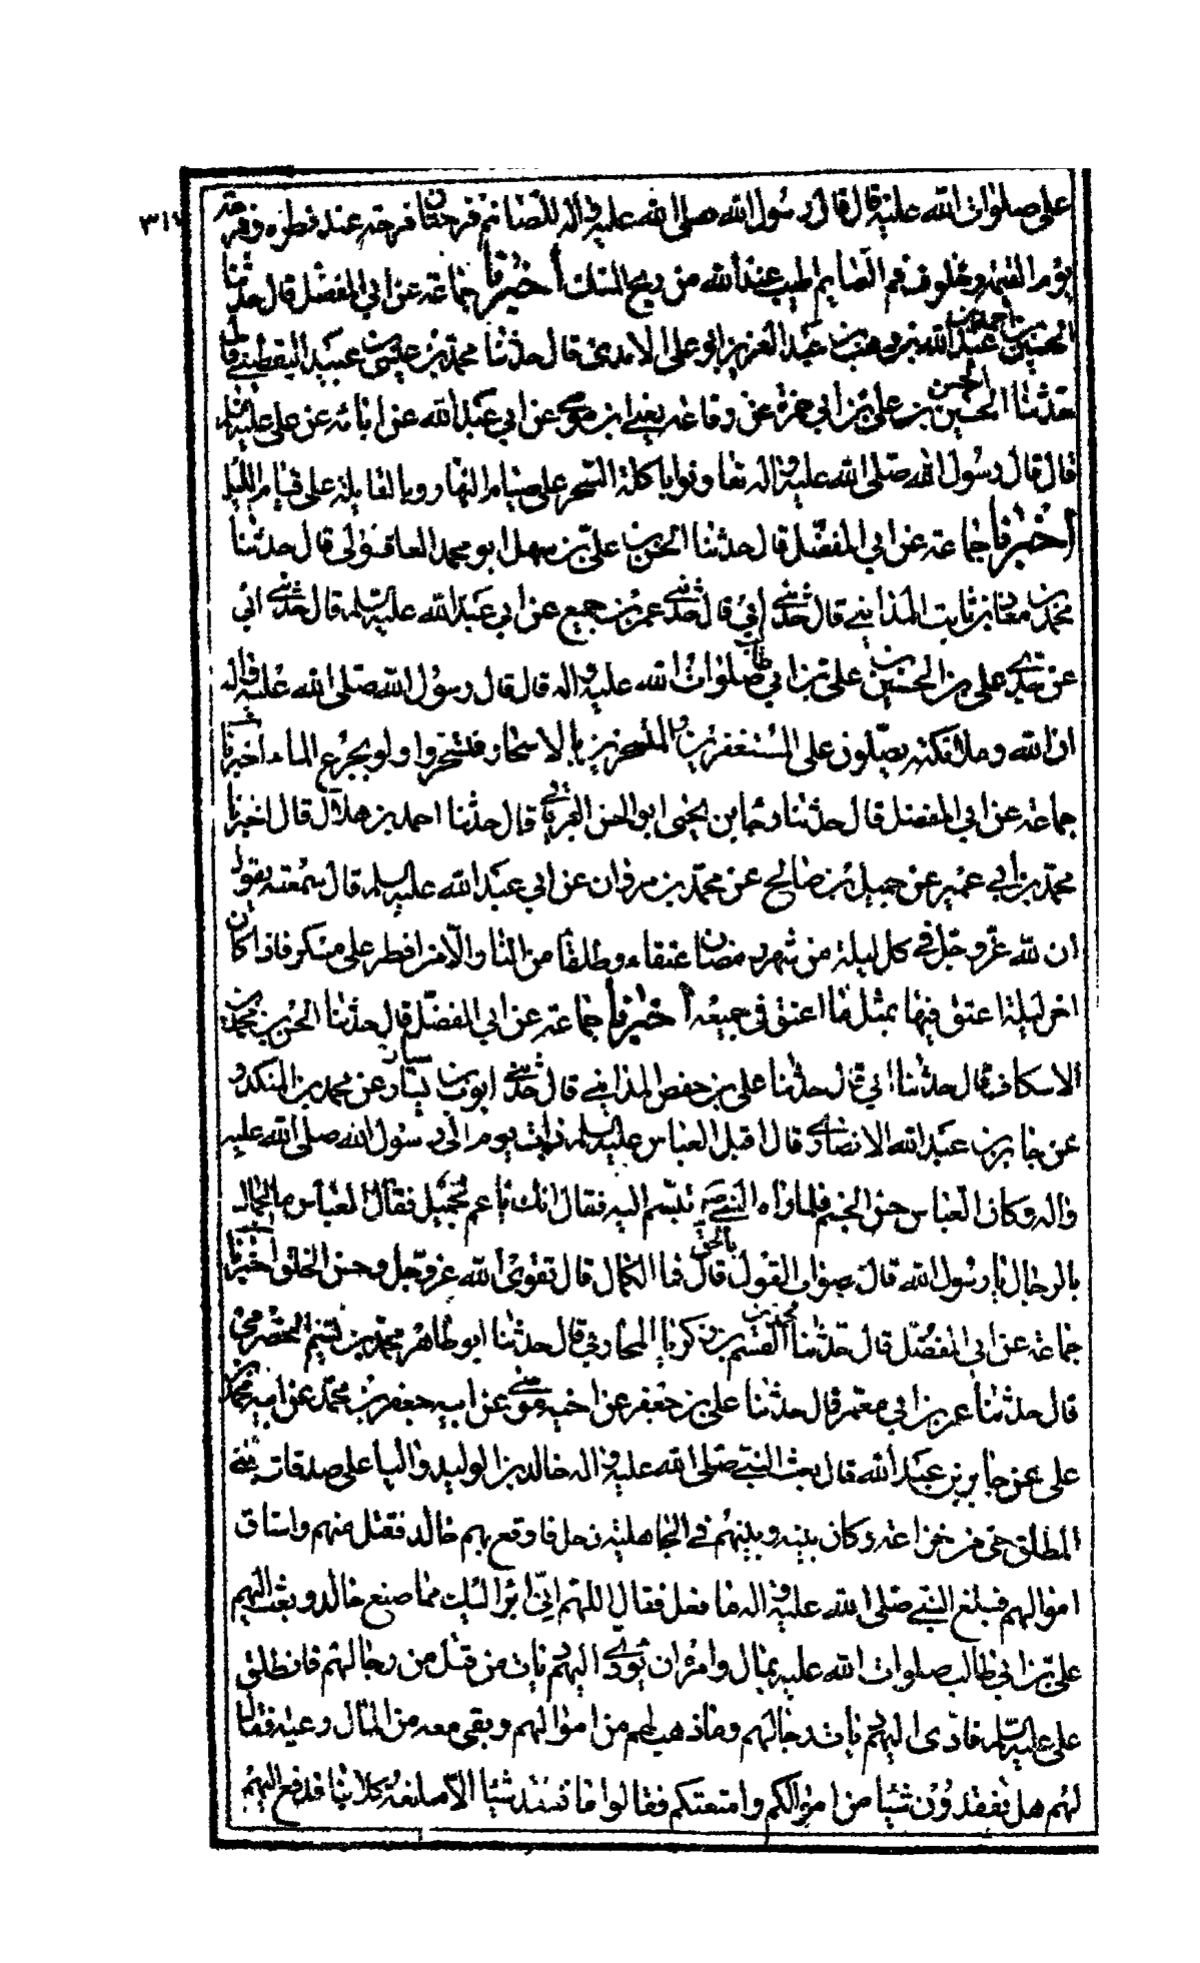 علي صلوات الله عليه قال قال رسول الله صلى الله عليه واله للصائم فرحتان فرحة عند فطره وفرحة
يوم القيمة وخلوف فم الصايم اطيب عند الله من ريح المسك أخبرنا جماعة عن ابي المفضل قال حدثنا
الحسين بن احمد بن عبد الله بن وهب بن عبد العزيز ابو علي الامدي قال حدثنا محمد بن عيسى بن عبيد اليقطيني قال
حدثنا الحسين الحسن بن علي بن ابي حمزة عن رفاعة يعني ابن موسى عن ابي عبد الله عن ابائه عن علي عليه السلام
قال قال رسول الله صلى الله عليه واله تعاونوا باكلة السحر على صيام النهار وبالقايلة على قيام الليل
أخبرنا جماعة عن ابي المفضل قال حدثنا الحسن بن علي بن سهل ابو محمد العاقولي قال حدثنا
محمد بن معاذ بن ثابت المدايني قال حدثني ابي قال حدثني عمر بن جميع عن ابي عبد الله عليه السلم قال حدثني ابي
عن جدي علي بن الحسين بن علي بن ابي طالب صلوات الله عليه واله قال قال رسول الله صلى الله عليه واله
ان الله وملائكته يصلون على المستغفرين والمتسحرين بالاسحار فتسحروا ولو بجرع الماء اخبرنا
جماعة عن ابي المفضل قال حدثنا رجا بن يحيى ابو الحسن العبرتائي قال حدثنا احمد بن هلال قال اخبرنا
محمد بن ابي عمير عن جميل بن صالح عن محمد بن مروان عن ابي عبد الله عليه السلم قال سمعته يقول
ان لله عز وجل في كل ليلة من شهر رمضان عتقاء وطلقا من النار الا من افطر على مسكر فاذا كان
اخر ليلة اعتق فيها بمثل ما اعتق في جميعه أخبرنا جماعة عن ابي المفضل قال حدثنا الحسن بن محمد بن
الاسكاف قال حدثنا ابي قال حدثنا علي بن حفص المدايني قال حدثني ايوب بن سيار عن محمد بن المنكدر
عن جابر بن عبد الله الانصاري قال اقبل العباس عليه السلم ذات يوم الى رسول الله صلى الله عليه
واله وكان العباس حسن الجسم فلما راه النبي تبسم اليه فقال انك يا عم لجميل فقال العباس ما الجمال
بالرجال يا رسول الله قال صواب القول بالحق قال فما الكمال قال تقوى الله عز وجل وحسن الخلق اخبرنا
جماعة عن ابي المفضل قال حدثنا محمد بن القسم بن زكريا المحاربي قال حدثنا ابو طاهر محمد بن تسنيم الحضرمي
قال حدثنا عمر بن ابي معمر قال حدثنا علي بن جعفر عن اخيه موسى عن ابيه جعفر بن محمد عن ابيه محمد بن
علي عن جابر بن عبد الله قال بعث النبي صلى الله عليه واله خالد بن الوليد واليا على صدقات بني
المطلق حي من خزاعة وكان بينه وبينهم في الجاهلية ذحل فاوقع بهم خالد فقتل منهم واستاق
اموالهم فبلغ النبي صلى الله عليه واله ما فعل فقال اللهم اني ابرأ اليك مما صنع خالد وبعث اليهم
علي بن ابي طالب صلوات الله عليه بمال وامره ان يودي اليهم ديات من قتل من رجالهم فانطلق
علي عليه السلم فادى اليهم ديات رجالهم وما ذهب لهم من اموالهم وبقي معه من المال زعبة فقال
لهم هل تفقدون شيئا من اموالكم وامتعتكم فقالوا ما نفقد شيئا الا ميلغة كلابنا فدفع اليهم